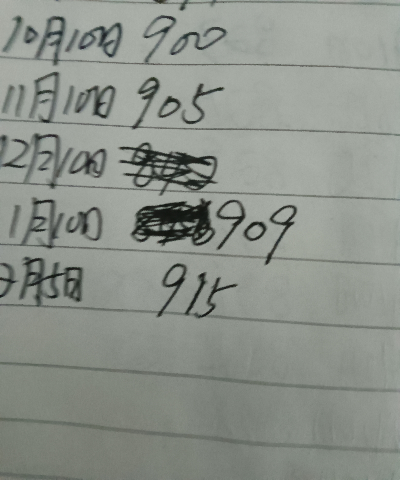 10月10日 900
11月10日 905
12月10日
1月10日 909
月5日 915